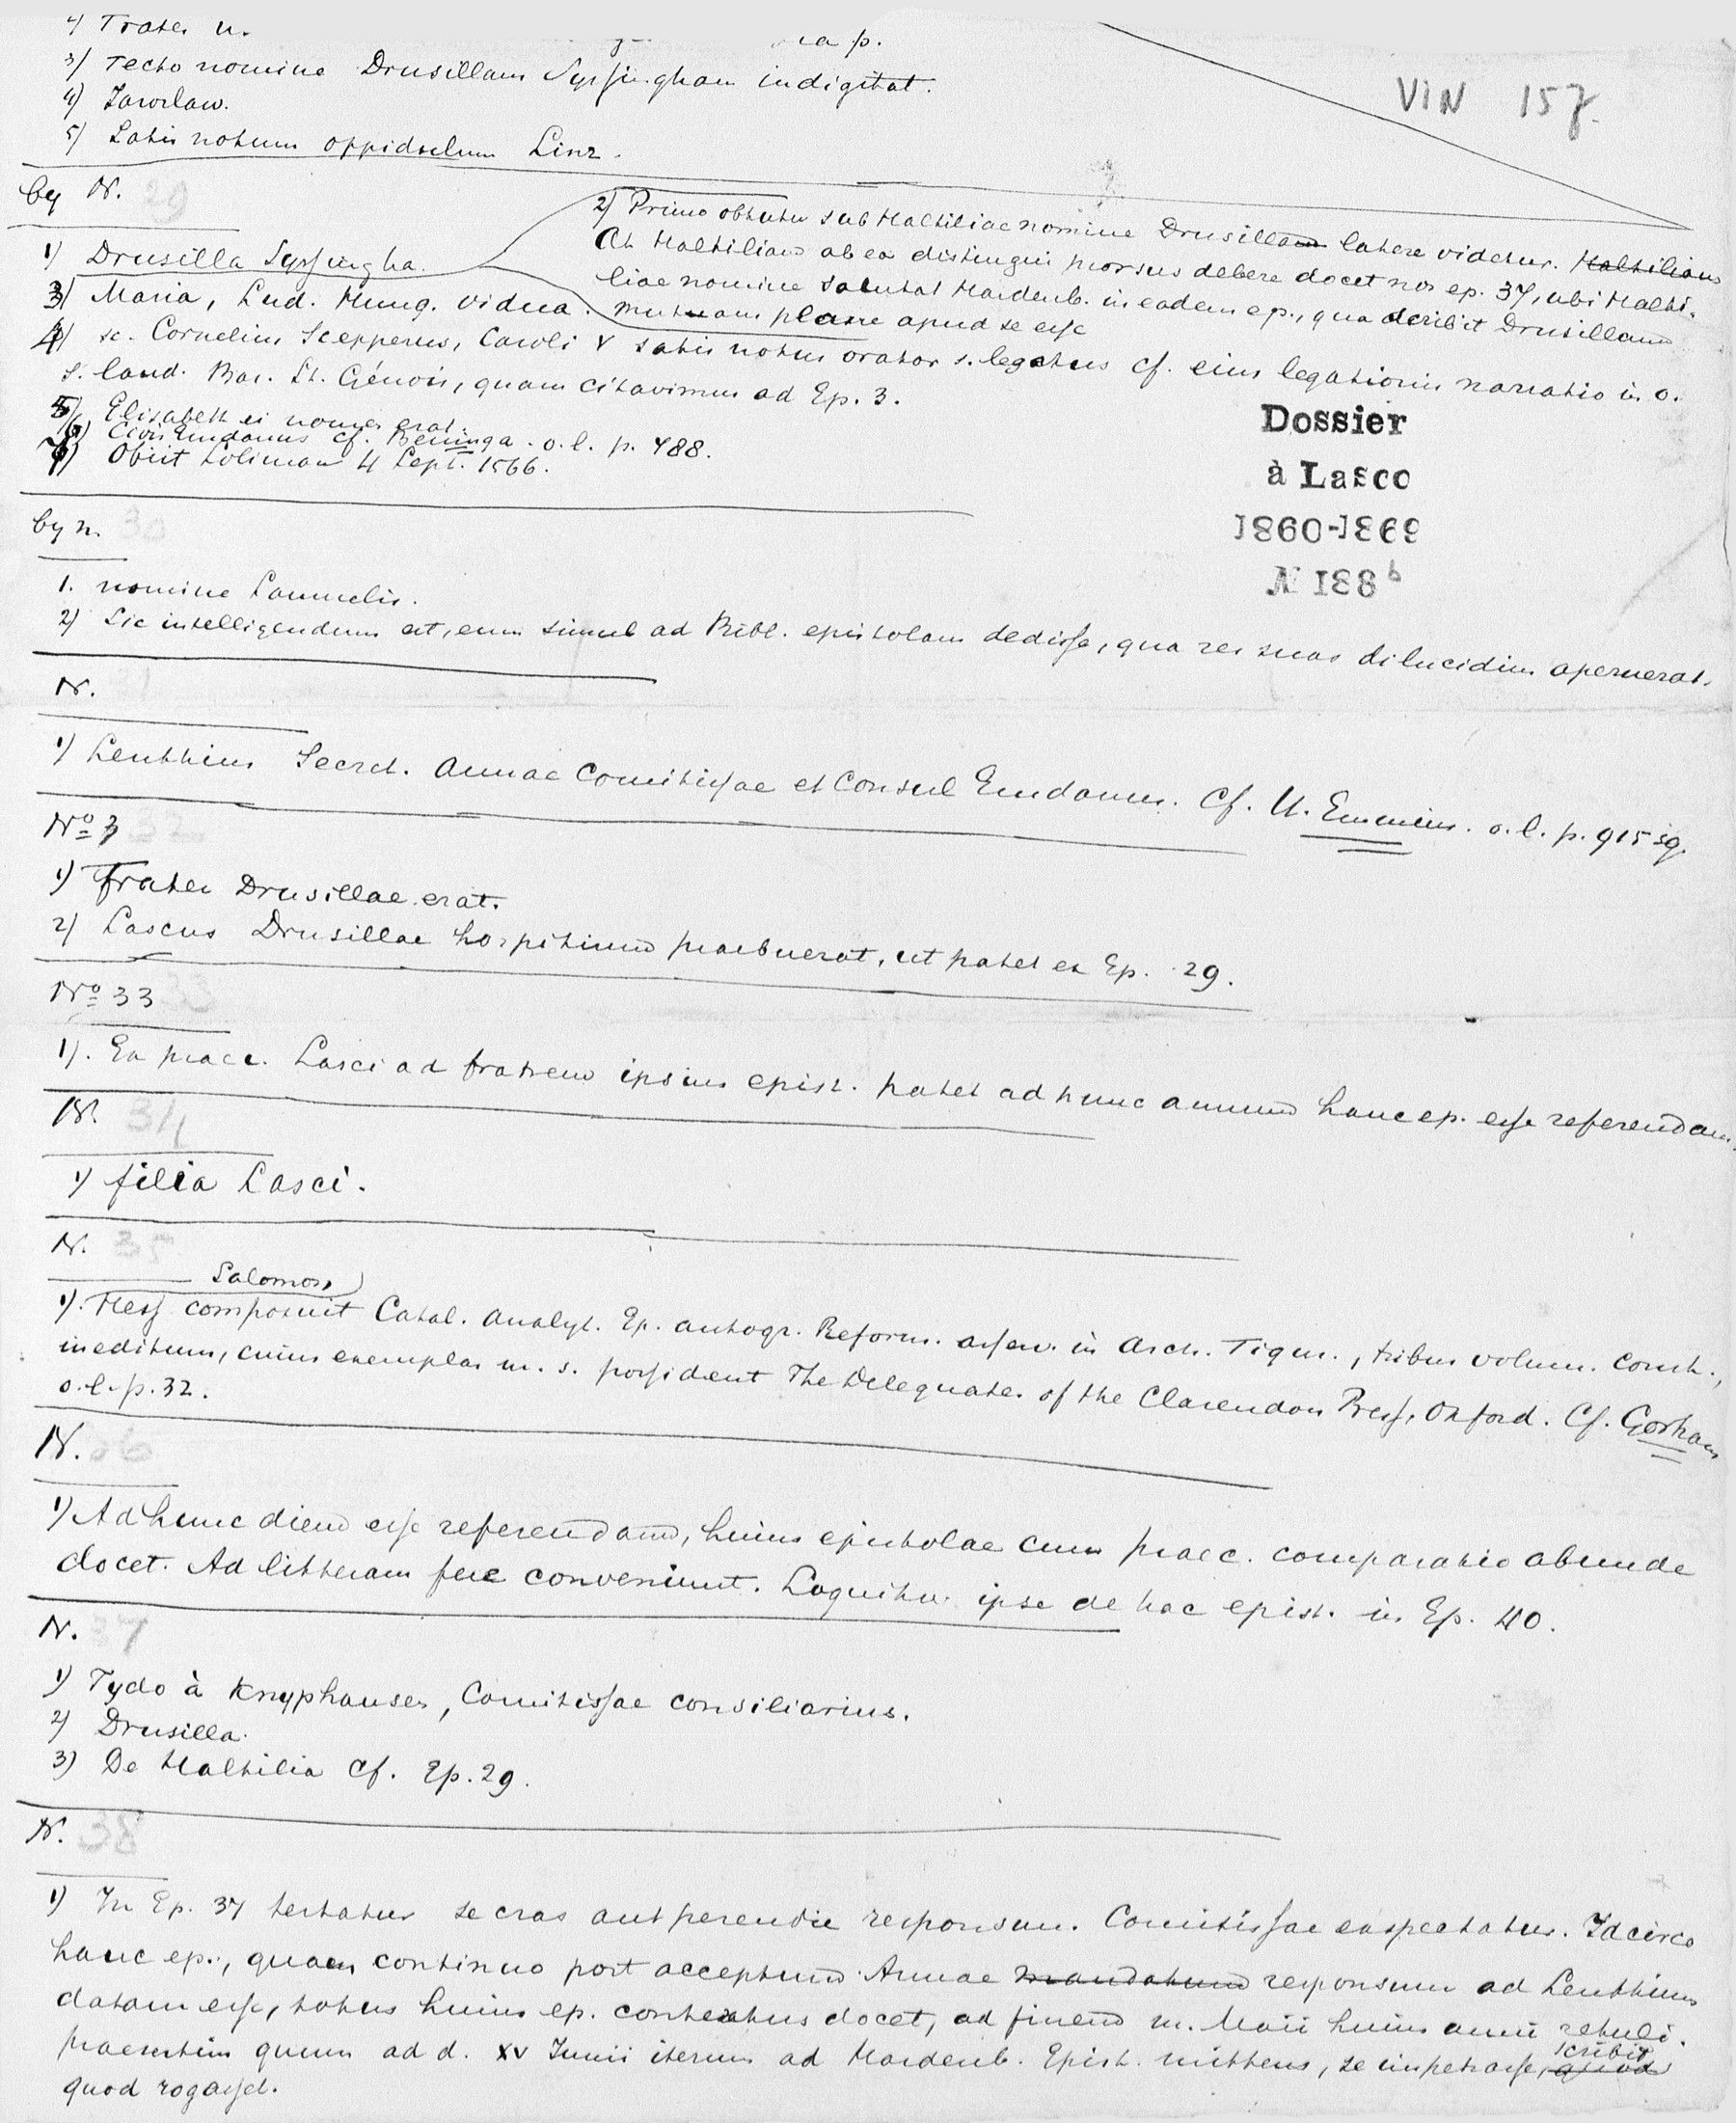 2) Frater u.
a p.
3) Recto nomine Drusillam Syrsingham indigitat.
4) Jaroslaw.
5) Satis notum oppidulum Linz.
VIN 157.
by N. 29
1) Drusilla Syrsingha.
2) Primo obtutu sub Malthiliae nomine Drusillam latere videtur. Malthiliam
At Malthiliam ab ea distingui prorsus debere docet nos ep. 37, ubi Malthi-
liae nomine salutat Hardenb. in eadem ep., qua scribit Drusillam
mutuam plane apud se esse
3) Maria, Lud. Hung. vidua.
4) sc. Cornelius Scepperus, Caroli V satis notus orator s. legatus cf. eius legationis narratio in o.
s. laud. Bar. St. Génois, quam citavimus ad Ep. 3.
5) Elisabeth ei nomen erat.
6) Civis Emdanus cf. Beninga. o. l. p. 788.
7) Obiit Soliman 4 Sept. 1566.
Dossier
à Lasco
1860-1869
N 188 b
by n. 30
1. nomine Samuelis.
2) Sic intelligendum est, eum simul ad Bibl. epistolam dedisse, qua res suas dilucidius aperuerat.
N.
1) Lenthius Secret. Annae Comitissae et Consul Emdanus. Cf. U. Emmius. o. l. p. 915 sq.
No 3 32
1) frater Drusillae erat.
2) Lascus Drusillae hospitium praebuerat, ut patet ex Ep. 29.
No 33 33
1). Ex praec. Lasci ad fratrem ipsius epist. patet ad hunc annum hanc ep. esse referendam.
N. 34
1) filia Lasci.
N. 35
Salomon
1). Hess composuit Catal. Analyt. Ep. autogr. Reform. asserv. in Arch. Tigur., tribus volum. const.,
ineditum, cuius exemplar m. s. possident The Delequates of the Clarendon Press, Oxford. Cf. Gorham
o. l. p. 32.
N. 36
1) Ad hunc diem esse referendam, huius epistolae cum praec. comparatio abunde
docet. Ad litteram fere conveniunt. Loquitur ipse de hac epist. in Ep. 40.
N. 37
1) Tydo à Knyphausen, Comitissae consiliarius.
2) Drusilla.
3) De Malthilia Cf. Ep. 29.
N. 38
1) In Ep. 37 testatur se cras aut perendie responsum Comitissae exspectatur. Idcirco
hanc ep., quam continuo post acceptum Annae mandatum responsum ad Lenthium
datam esse, totus huius ep. contextus docet, ad finem m. Maii huius anni retuli.
praesertim quum ad d. XV Junii iterum ad Hardenb. Epist. mittens, se impetrasse, scribit quod
quod rogasset.